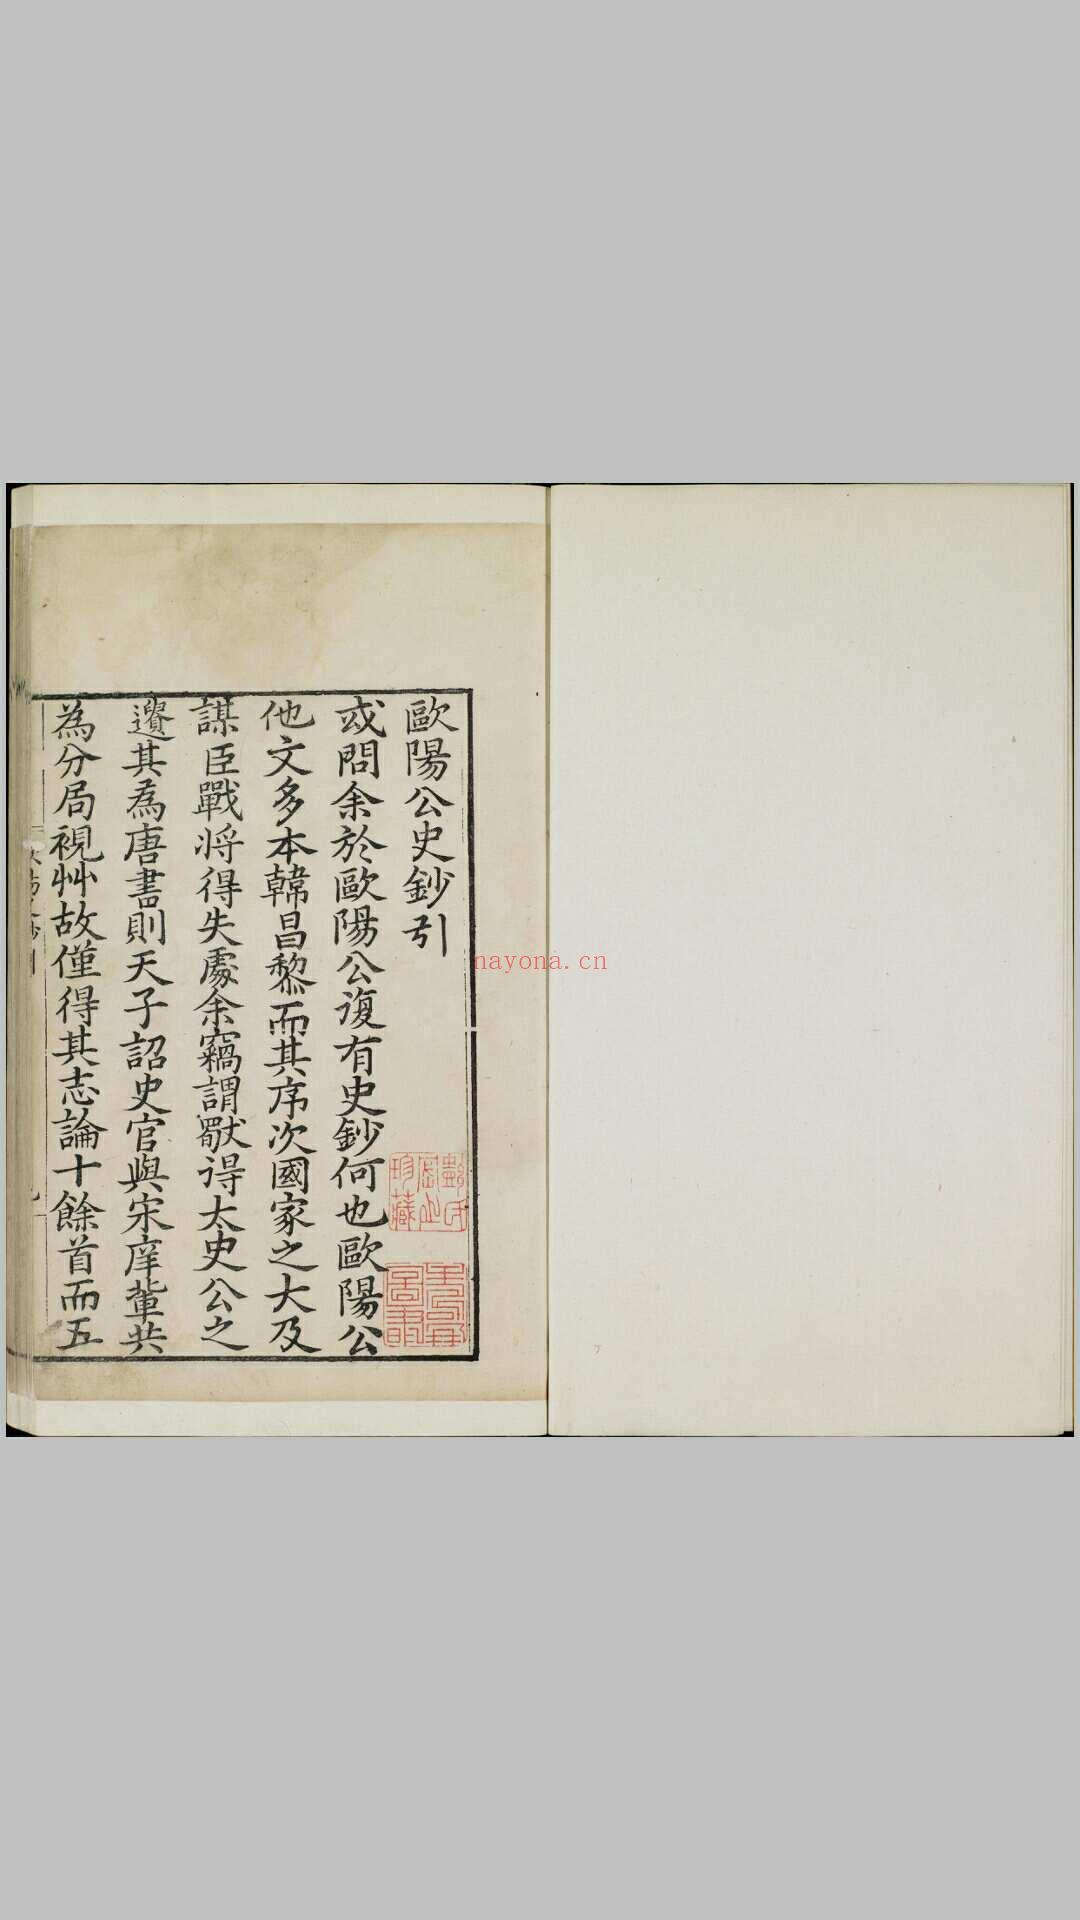 歐陽公史鈔引
或問余於歐陽公復有史鈔何也歐陽公
他文多本韓昌黎而其序次國家之大及
謀臣戰將得失處余竊謂獨得太史公之
遺其為唐書則天子詔史官與宋庠輩共
為分局視艸故僅得其志論十餘首而五
珍藏
nayona.cn